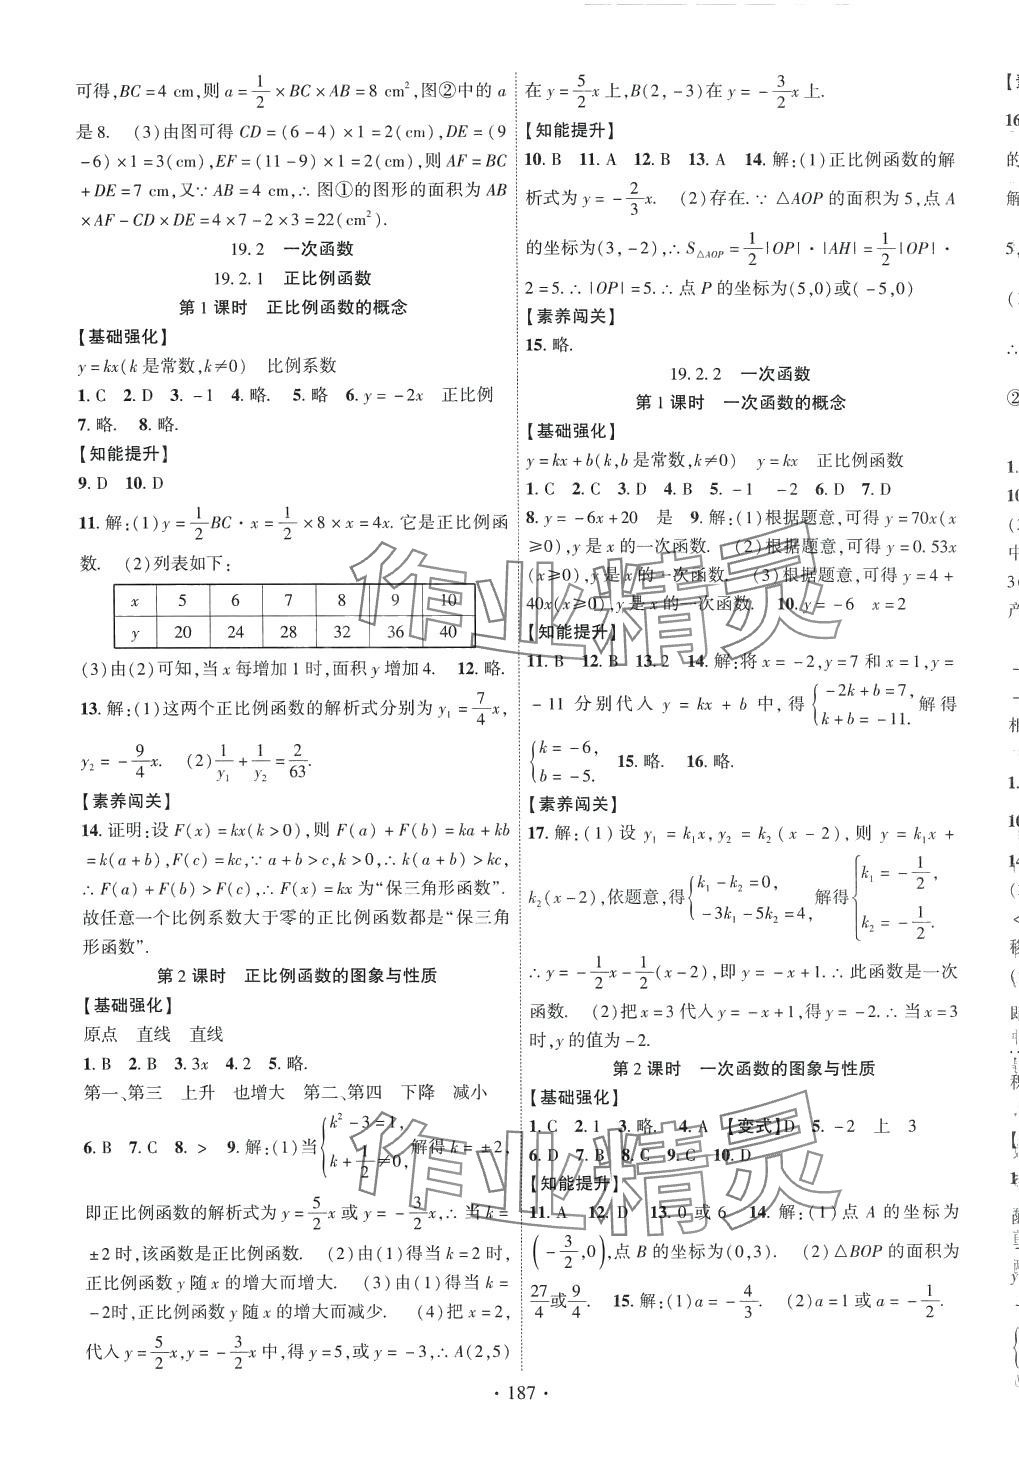 可得,BC=4 cm,则 a=1/2×BC×AB=8 cm²,图②中的 a
是8. (3)由图可得 CD=(6-4)×1=2(cm),DE=(9
-6)×1=3(cm),EF=(11-9)×1=2(cm),则 AF=BC
+DE=7 cm,又∵ AB=4 cm,∴ 图①的图形的面积为 AB
×AF-CD×DE=4×7-2×3=22(cm²).
19.2 一次函数
19.2.1 正比例函数
第1课时 正比例函数的概念
【基础强化】
y=kx(k 是常数,k≠0) 比例系数
1. C 2. D 3. -1 4. 略. 5. 略 6. y=-2x 正比例
7. 略. 8. 略.
【知能提升】
9. D 10. D
11. 解:(1)y=1/2BC·x=1/2×8×x=4x. 它是正比例函
数. (2)列表如下:
x 5 6 7 8 9 10
y 20 24 28 32 36 40
(3)由(2)可知,当 x 每增加1时,面积 y 增加4. 12. 略.
13. 解:(1)这两个正比例函数的解析式分别为 y₁=7/4x,
y₂=-9/4x. (2)1/y₁+1/y₂=2/63.
【素养闯关】
14. 证明:设 F(x)=kx(k>0),则 F(a)+F(b)=ka+kb
=k(a+b),F(c)=kc,∵a+b>c,k>0,∴k(a+b)>kc,
∴F(a)+F(b)>F(c),∴F(x)=kx 为“保三角形函数”.
故任意一个比例系数大于零的正比例函数都是“保三角
形函数”.
第2课时 正比例函数的图象与性质
【基础强化】
原点 直线 直线
1. B 2. B 3. 3x 4. 2 5. 略.
第一、第三 上升 也增大 第二、第四 下降 减小
6. B 7. C 8. > 9. 解:(1)当{k²-3=1, k+1/2≠0,解得 k=±2,
即正比例函数的解析式为 y=5/2x 或 y=-3/2x,∴ 当 k=
±2时,该函数是正比例函数. (2)由(1)得当 k=2时,
正比例函数 y 随 x 的增大而增大. (3)由(1)得当 k=
-2时,正比例函数 y 随 x 的增大而减少. (4)把 x=2,
代入 y=5/2x,y=-3/2x 中,得 y=5,或 y=-3,∴A(2,5)
在 y=5/2x 上,B(2,-3)在 y=-3/2x 上.
【知能提升】
10. B 11. A 12. B 13. A 14. 解:(1)正比例函数的解
析式为 y=-2/3x. (2)存在.∵ △AOP 的面积为5,点 A
的坐标为(3,-2),∴S△AOP=1/2|OP|·|AH|=1/2|OP|·
2=5.∴|OP|=5.∴点 P 的坐标为(5,0)或(-5,0)
【素养闯关】
15. 略.
19.2.2 一次函数
第1课时 一次函数的概念
【基础强化】
y=kx+b(k,b 是常数,k≠0) y=kx 正比例函数
1. C 2. C 3. D 4. B 5. -1 -2 6. D 7. D
8. y=-6x+20 是 9. 解:(1)根据题意,可得 y=70x(x
≥0),y 是 x 的一次函数. (2)根据题意,可得 y=0.53x
(x≥0),y 是 x 的一次函数. (3)根据题意,可得 y=4+
40x(x≥0),y 是 x 的一次函数. 10. y=-6 x=2
【知能提升】
11. B 12. B 13. 2 14. 解:将 x=-2,y=7 和 x=1,y=
-11 分别代入 y=kx+b 中,得{-2k+b=7, k+b=-11.解得
{k=-6, b=-5. 15. 略. 16. 略.
【素养闯关】
17. 解:(1)设 y₁=k₁x,y₂=k₂(x-2),则 y=k₁x+
k₂(x-2),依题意,得{k₁-k₂=0, -3k₁-5k₂=4,解得{k₁=-1/2, k₂=-1/2.
∴y=-1/2x-1/2(x-2),即 y=-x+1.∴此函数是一次
函数. (2)把 x=3代入 y=-x+1,得 y=-2.∴当 x=3
时,y 的值为-2.
第2课时 一次函数的图象与性质
【基础强化】
1. C 2. 1 3. 略. 4. A 【变式】D 5. -2 上 3
6. D 7. B 8. C 9. C 10. D
【知能提升】
11. A 12. D 13. 0 或 6 14. 解:(1)点 A 的坐标为
(-3/2,0),点 B 的坐标为(0,3). (2)△BOP 的面积为
27/4或9/4. 15. 解:(1)a=-4/3. (2)a=1或a=-1/2.
·187·
作业精灵
作业精灵